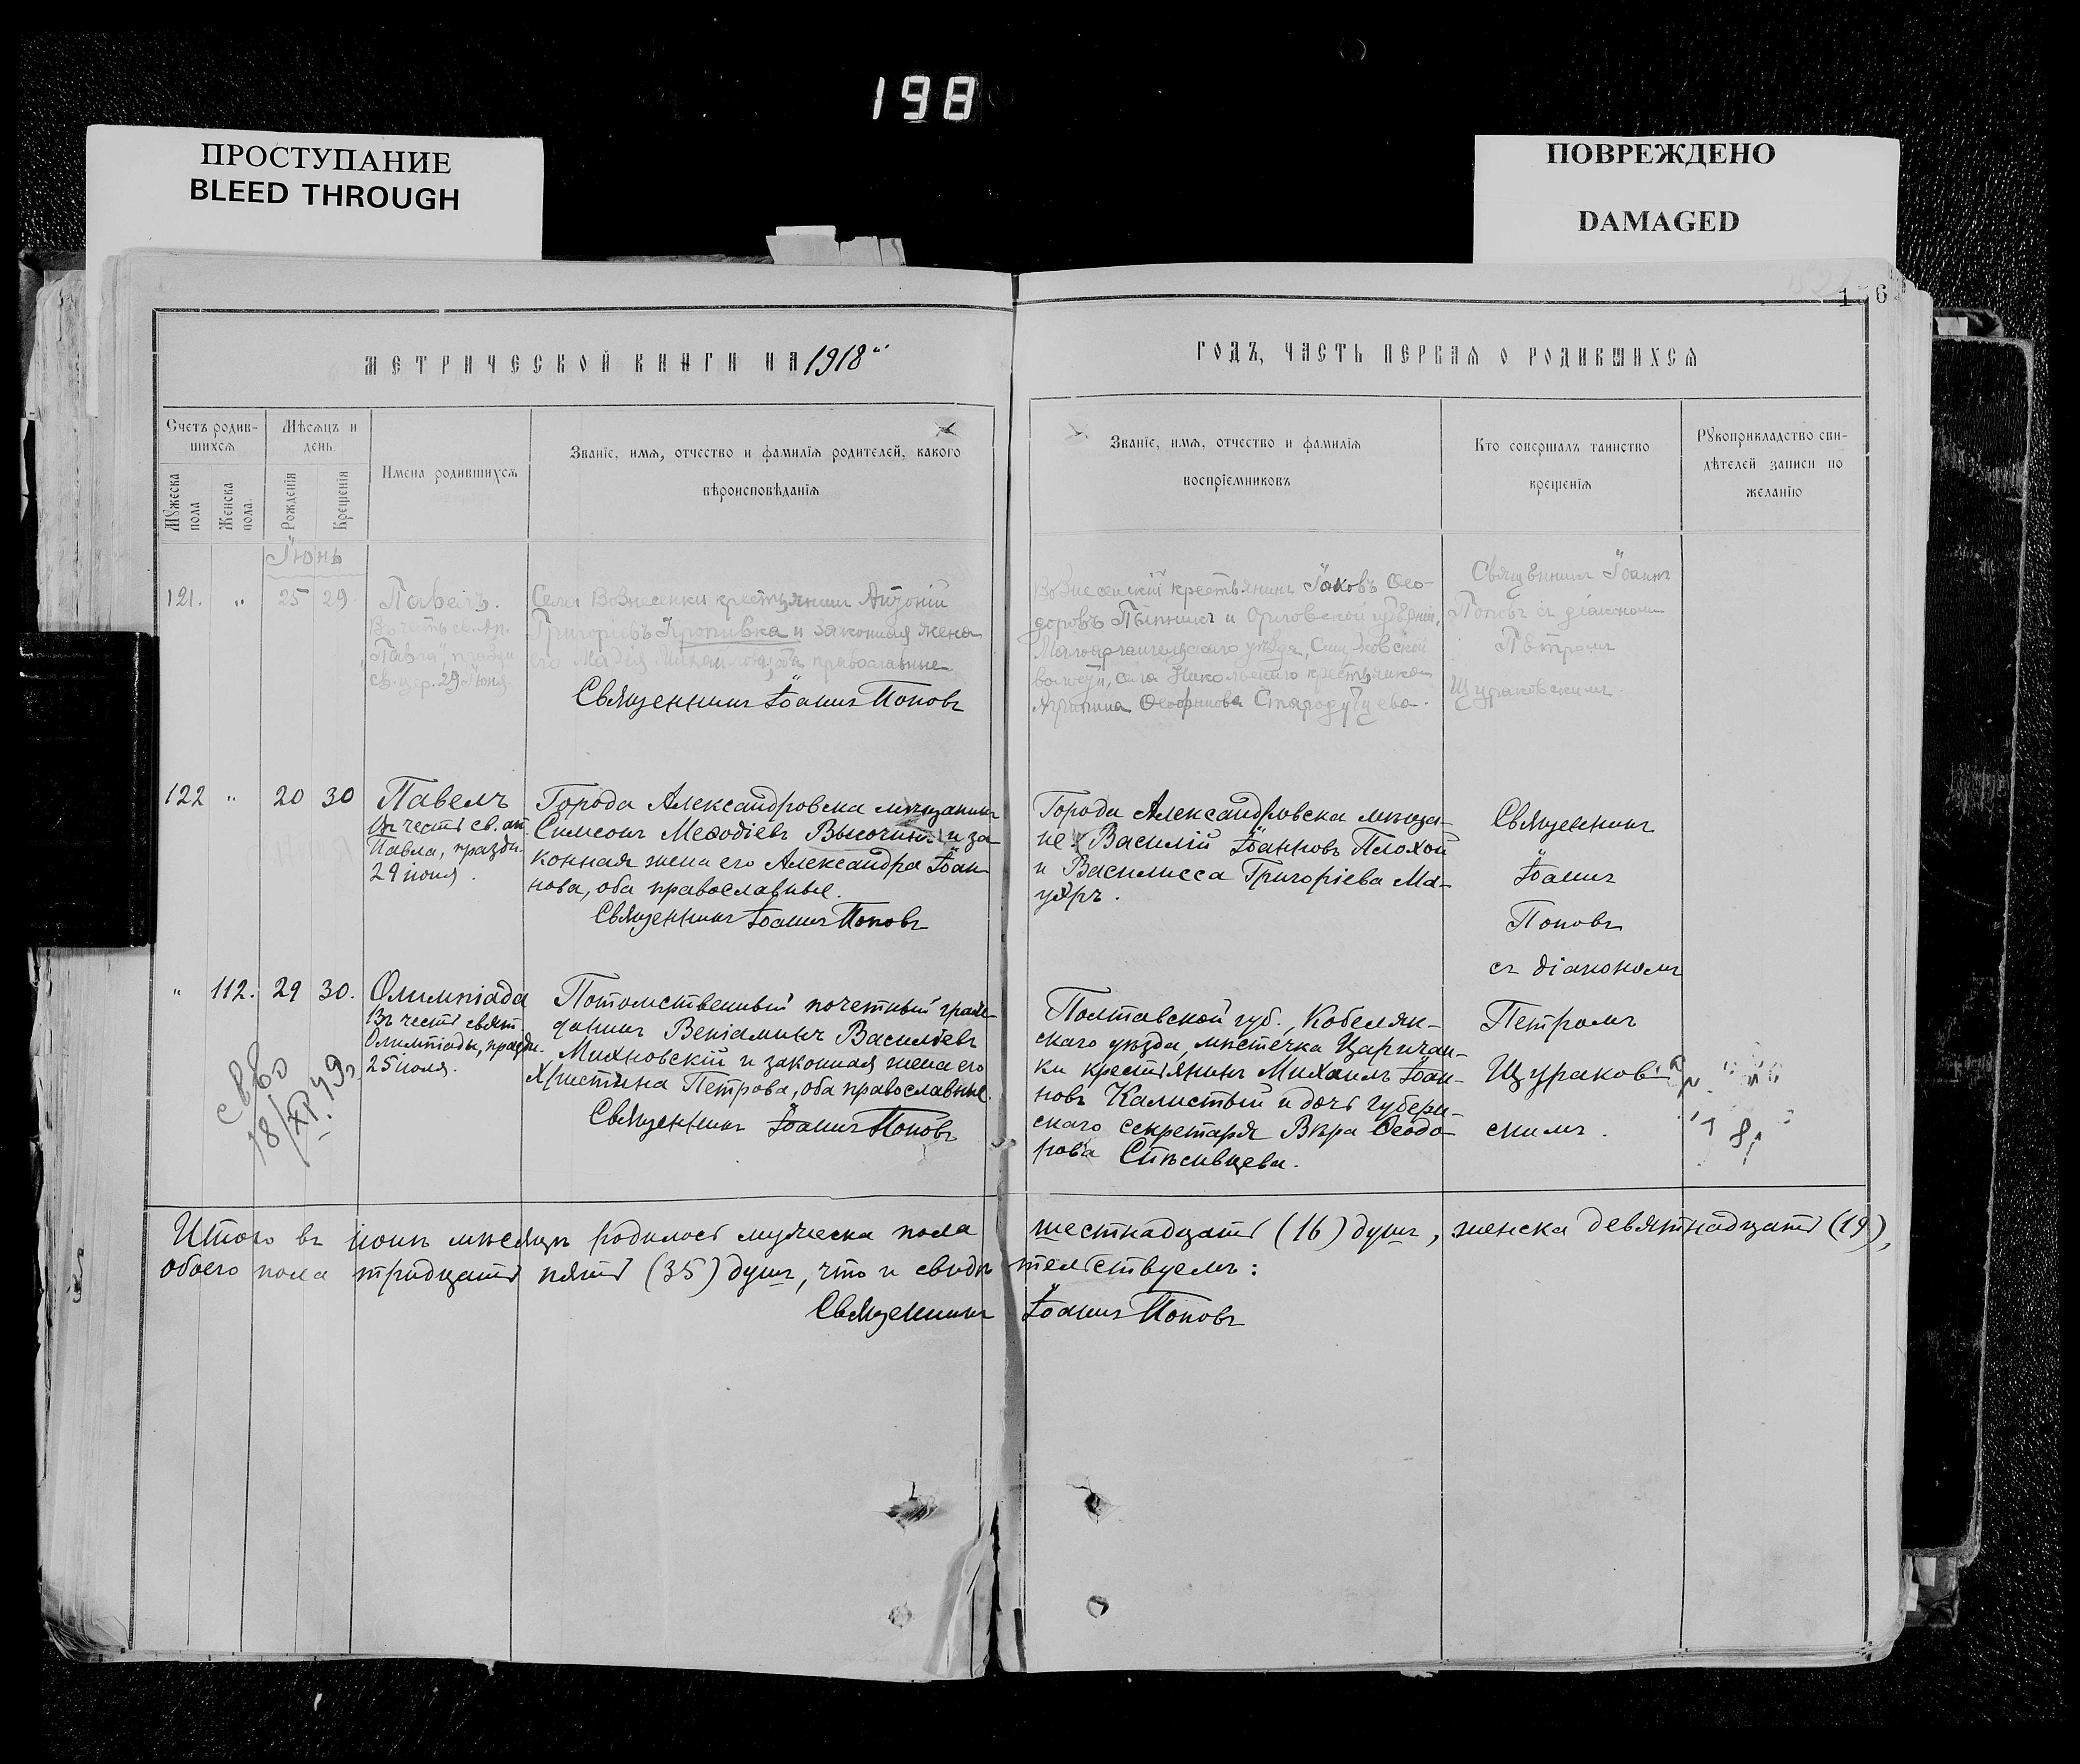 198
ПРОСТУПАНИЕ
BLEED THROUGH
ПОВРЕЖДЕНО
DAMAGED
МЕТРИЧЕСКОЙ КНИГИ НА 1918 й
ГОДЪ, ЧАСТЬ ПЕРВАЯ О РОДИВШИХСЯ
Счетъ родив-
шихся
Мужеска
пола
Женска
пола.
Мѣсяцъ и
день.
Рожденія
Крещенія
Имена родившихся
Званіе, имя, отчество и фамилія родителей, какого
вѣроисповѣданія
Званіе, имя, отчество и фамилія
воспріемниковъ
Кто совершалъ таинство
крещенія
Рукоприкладство сви-
дѣтелей записи по
желанію
Іюнь
121. " 25 29
Павелъ.
Въ честь св. Ап.
Павла, праздн.
св. цер. 29 Іюня
Села Вознесенки крестьянин Антоній
Григоріевъ Кропивка и законная жена
его Михайлова, оба православные
Священникъ Іоаннъ Поповъ
Вознесенскій крестьянинъ Іаковъ Ѳео-
доровъ и Орловской губерніи,
Малоархангельскаго уѣзда,
волости, села Никольскаго крестьянка
Стародубцева.
Священникъ Іоаннъ
Поповъ съ діакономъ
Петромъ
Щураковскимъ.
122 " 20 30
Павелъ
Въ честь св. ап.
Павла, праздн.
29 іюня.
Города Александровска мѣщанинъ
Симеонъ Меѳодіевъ и за-
конная жена его Александра Іоан-
нова, оба православные.
Священникъ Іоаннъ Поповъ
Города Александровска мѣща-
не: Василій Іоанновъ Плохой
и Василисса Григоріева Ма-
уръ.
Священникъ
Іоаннъ
Поповъ
съ діакономъ
Петромъ
Щураков-
скимъ.
" 112. 29 30.
Олимпіада
Въ честь свят.
Олимпіады, праздн.
25 іюля.
Потомственный почетный граж-
данинъ Веніаминъ Василіевъ
Михновскій и законная жена его
Христина Петрова, оба православные.
Священникъ Іоаннъ Поповъ
Полтавской губ., Кобеляк-
скаго уѣзда, мѣстечка Царичан-
ки крестьянинъ Михаилъ Іоан-
новъ Калистый и дочь губерн-
скаго секретаря Вѣра Ѳеодо-
рова Спѣсивцева.
18/XI. 49 г.
Итого въ іюнѣ мѣсяцѣ родилось мужеска пола шестнадцать (16) душъ, женска девятнадцать (19),
обоего пола тридцать пять (35) душъ, что и свидѣтельствуемъ:
Священникъ Іоаннъ Поповъ